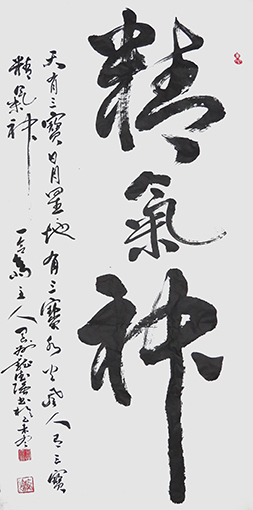 精氣神
天有三寶日月星地有三寶水火風人有三寶
精氣神
主人